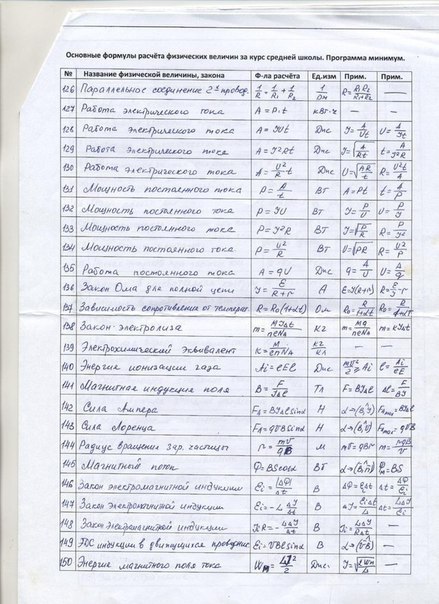 Основные формулы расчёта физических величин за курс средней школы. Программа минимум.
№ Название физической величины, закона Ф-ла расчёта Ед.изм Прим. Прим.
126 Параллельное соединение 2х провод. 1/R = 1/R₁ + 1/R₂ R = R₁R₂/R₁+R₂ —
127 Работа электрического тока A = P·t кВт·ч — —
128 Работа электрического тока A = IUt Дж I = A/Ut U = A/It
129 Работа электрического тока A = I²Rt Дж I = √A/Rt t = A/I²R
130 Работа электрического тока A = U²/R·t Дж U = √AR/t R = U²t/A
131 Мощность постоянного тока P = A/t Вт A = Pt t = A/P
132 Мощность постоянного тока P = IU Вт I = P/U U = P/I
133 Мощность постоянного тока P = I²R Вт I = √P/R R = P/I²
134 Мощность постоянного тока P = U²/R Вт U = √PR R = U²/P
135 Работа постоянного тока A = qU Дж q = A/U U = A/q
136 Закон Ома для полной цепи I = E/R+r А E = I(R+r) R = E/I - r
137 Зависимость сопротивления от температ. R = R₀(1+αt) Ом R₀ = R/1+αt
138 Закон электролиза кг
139 Электрохимический эквивалент K = M/enNₐ кг/Кл — —
140 Энергия ионизации газа Ai = eEl Дж mv²/2 ≥ Ai l = Ai/eE
141 Магнитная индукция поля Тл —
142 Сила Ампера Fₐ = BIΔl sinα Н
143 Сила Лоренца Fₗ = qVB sinα Н
144 Радиус вращения зар. частицы r = mV/qB М
145 Магнитный поток Ф = BS cosα Вб
146 Закон электромагнитной индукции Ei = |ΔФ/Δt| В ΔФ = EiΔt Δt = ΔФ/Ei
147 Закон электромагнитной индукции Ei = -L ΔI/Δt В
148 Закон электромагнитной индукции IiR = -L ΔI/Δt В —
149 ЭДС индукции в движущихся проводник Ei = VBl sinα В —
150 Энергия магнитного поля тока Wм = LI²/2 Дж. I = √2Wм/L —